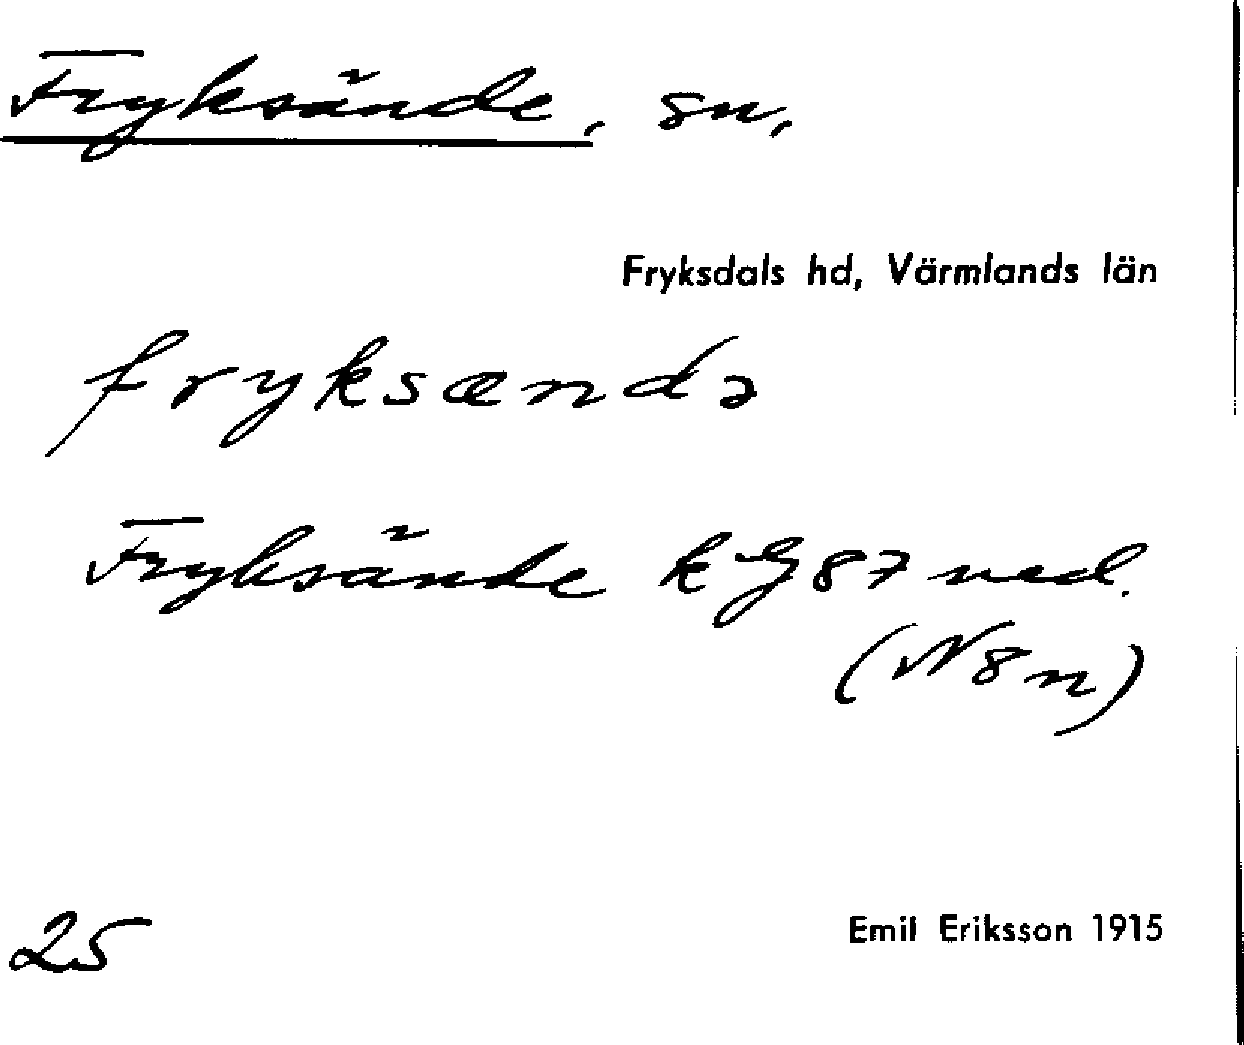 Fryksände, sn,
Fryksdals hd, Värmlands län
fryksændə
Fryksände kG87 ned.
(N8n)
25
Emil Eriksson 1915